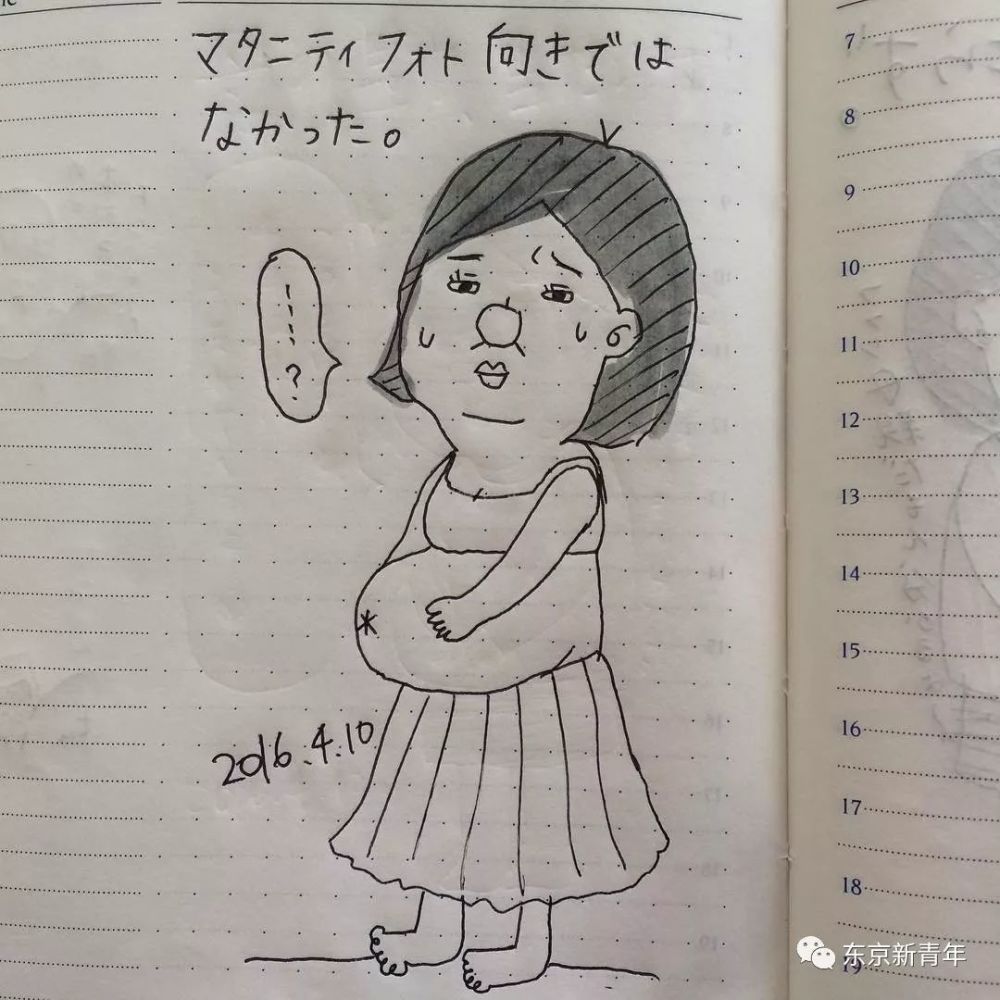 マタニティフォト向きでは
なかった。
----?
2016.4.10
7
8
9
10
11
12
13
14
15
16
17
18
19
东京新青年